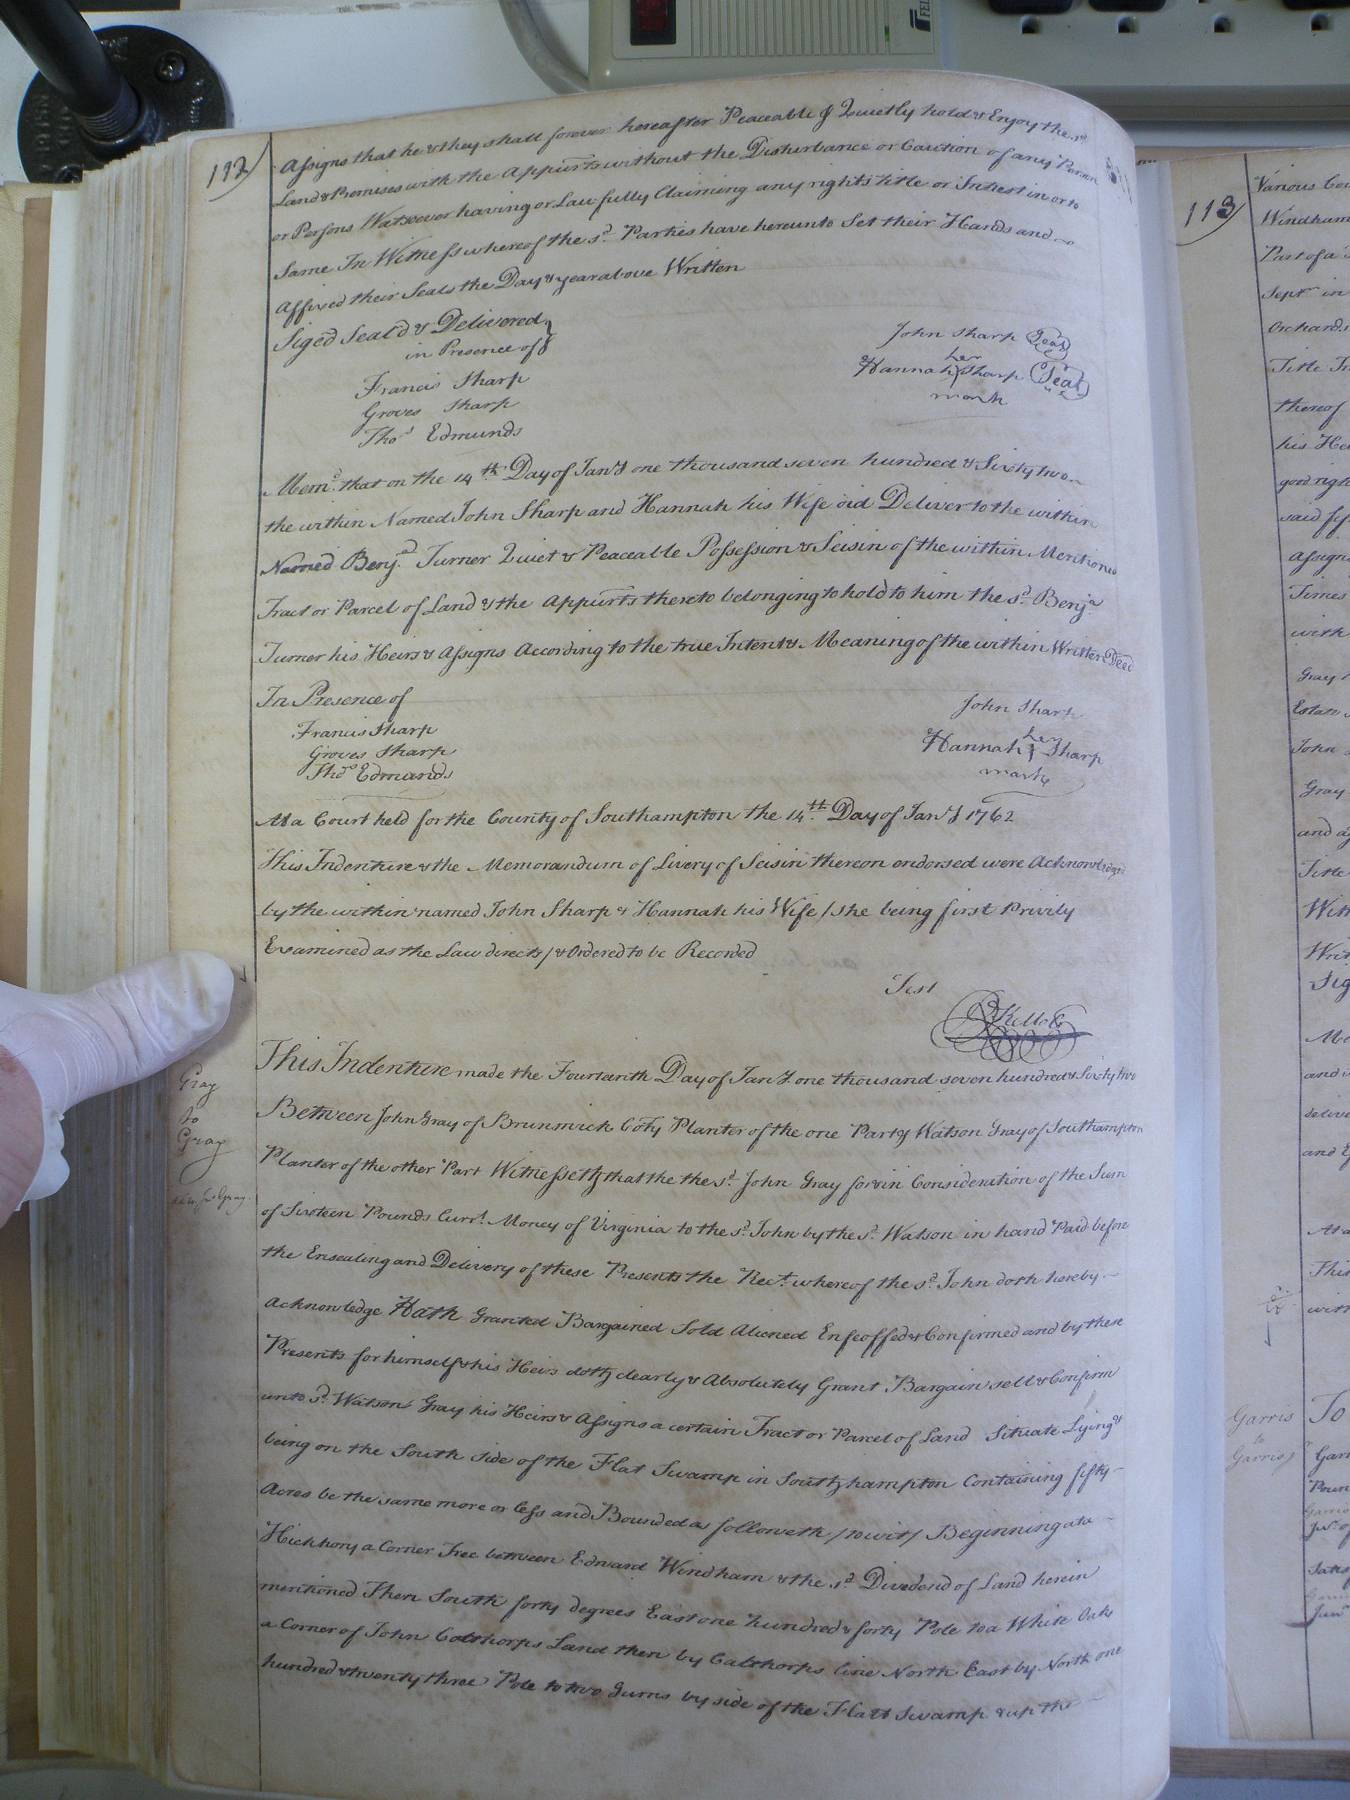 112)
Assigns that he & they shall forever hereafter Peaceable & Quietly hold & Enjoy the sd
Land & Premises with the Appurts without the Disturbance or Caution of any Person
or Persons Watsoever having or Lawfully Claiming any rights title or Intrest in or to
Same In Witness whereof the sd. Parties have hereunto Set their Hands and
Affixed their Seals the Day & year above Written
Siged Seal'd & Delivered
in Presence of
Francis Sharp
Groves Sharp
Thos Edmunds
John Sharp (Seal)
her
Hannah Sharp (Seal)
mark
Memo. that on the 14th Day of Jany one thousand seven hundred & Sixty two
the within Named John Sharp and Hannah his Wife did Deliver to the within
Named Benja. Turner Quiet & Peaceable Possession & Seisin of the within Mentioned
Tract or Parcel of Land & the Appurts thereto belonging to hold to him the sd. Benja.
Turner his Heirs & Assigns According to the true Intent & Meaning of the within Written Deed
In Presence of
Francis Sharp
Groves Sharp
Thos Edmunds
John Sharp
her
Hannah Sharp
mark
At a Court held for the County of Southampton the 14th Day of Jany 1762
This Indenture & the Memorandum of Livery of Seisin thereon endorsed were Acknowledged
by the within named John Sharp & Hannah his Wife / She being first Privily
Examined as the Law directs / & Ordered to be Recorded
Test
RKello
Gray
to
Gray
This Indenture made the Fourteenth Day of Jany one thousand seven hundred & Sixty two
Between John Gray of Brunswick Coty Planter of the one Party Watson Gray of Southampton
Planter of the other Part Witnesseth that the the sd. John Gray for & in Consideration of the Sum
of Sixteen Pounds Currt. Money of Virginia to the sd. John by the sd. Watson in hand Paid before
the Ensealing and Delivery of these Presents the Rect. whereof the sd. John doth hereby
Acknowledge Hath Granted Bargained Sold Aliened Enfeoffed & Confirmed and by these
Presents for himself & his Heirs doth clearly & Absolutely Grant Bargain sell & Confirm
unto sd. Watson Gray his Heirs & Assigns a certain Tract or Parcel of Land Situate Lying &
being on the South side of the Flat Swamp in Southhampton Containing fifty
Acres be the same more or less and Bounded as followeth / to wit / Beginning at a
Hickhory a Corner Tree between Edward Windham & the sd Dividend of Land herein
mentioned Then South forty degrees East one hundred & forty Pole to a White Oak
a Corner of John Calthorps Land then by Calthorps line North East by North one
hundred & twenty three Pole to two Gums by side of the Flatt Swamp & up the
113)
Various
Windham
Part of a
Sept in
Orchards
Title
thereof
his
good right
said
Assigns
Times
with
Gray
Estate
John
Gray
and
Title
Wit
Writ
Sig
and
and
At a
This
with
Garris
to
Garris
To